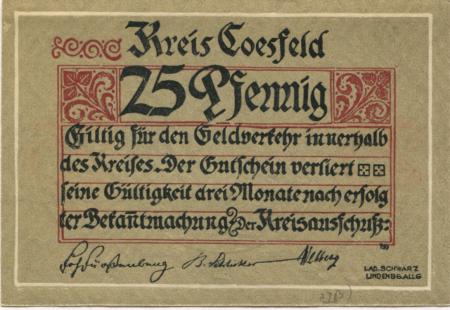 Kreis Coesfeld
25 Pfennig
Giltig für den Geldverkehr innerhalb
des Kreises. Der Gutschein verliert
seine Gültigkeit drei Monate nach erfolg
ter Bekan̄tmachung. Der Kreisausschuß:
LAD. SCHWARZ
LINDENBG. ALLG